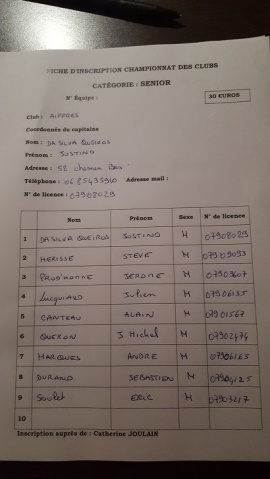 FICHE D'INSCRIPTION CHAMPIONNAT DES CLUBS
CATÉGORIE : SENIOR
N° Équipe :
30 EUROS
Club : AIFFRES
Coordonnés du capitaine
Nom : DA SILVA QUEIROS
Prénom : JUSTINO
Adresse : 52 chemin Bas
Téléphone : 0685435940 Adresse mail :
N° de licence : 07908029
Nom Prénom Sexe N° de licence
1 DA SILVA QUEIROS JUSTINO M 07908029
2 HERISSE STEVE M
3 PRUD'HOMME JEROME M 07903607
4 Julien M 07906135
5 CANTEAU ALAIN M 07901567
6 QUERON J Michel M 07902474
7 MARQUES ANDRE M 07906165
8 DURAND SEBASTIEN M 07904125
9 Soulet ERIC M 07903217
10
Inscription auprès de : Catherine JOULAIN